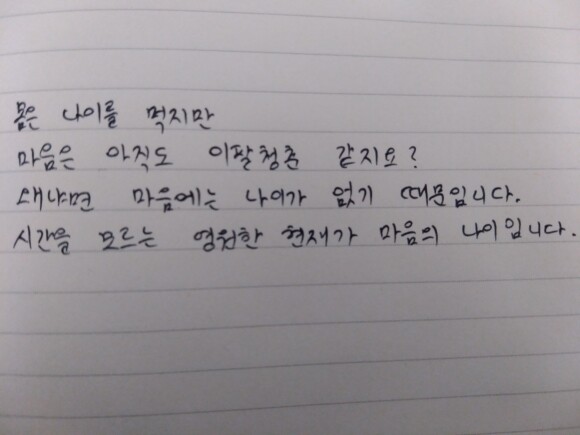 몸은 나이를 먹지만
마음은 아직도 이팔청춘 같지요?
왜냐면 마음에는 나이가 없기 때문입니다.
시간을 모르는 영원한 현재가 마음의 나이입니다.